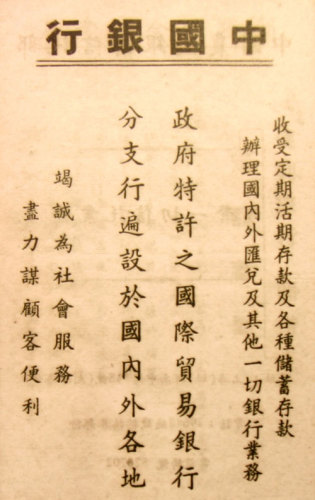 中國銀行
收受定期活期存款及各種儲蓄存款
辦理國內外匯兌及其他一切銀行業務
政府特許之國際貿易銀行
分支行遍設於國內外各地
竭誠為社會服務
盡力謀顧客便利